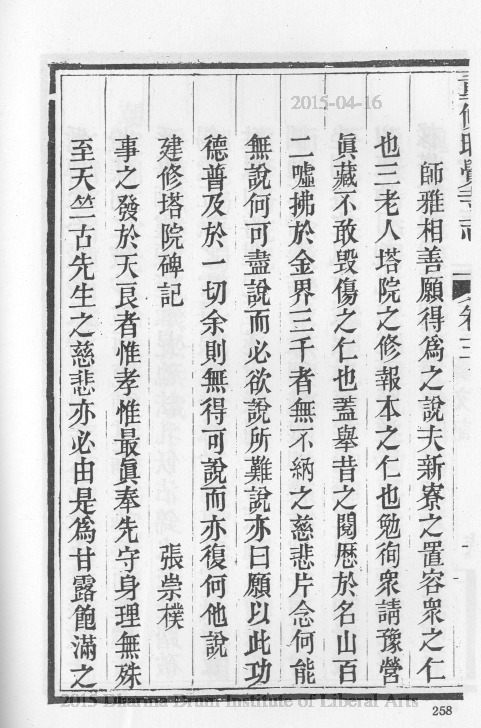 重修昭覺寺志 卷三
師雅相善願得爲之說夫新寮之置容衆之仁
也三老人塔院之修報本之仁也勉徇衆請豫營
眞藏不敢毀傷之仁也蓋舉昔之閱歷於名山百
二噓拂於金界三千者無不納之慈悲片念何能
無說何可盡說而必欲說所難說亦曰願以此功
德普及於一切余則無得可說而亦復何他說
建修塔院碑記 張崇樸
事之發於天良者惟孝惟最眞奉先守身理無殊
至天竺古先生之慈悲亦必由是爲甘露飽滿之
2015-04-16
2015 Dharma Drum Institute of Liberal Arts
258